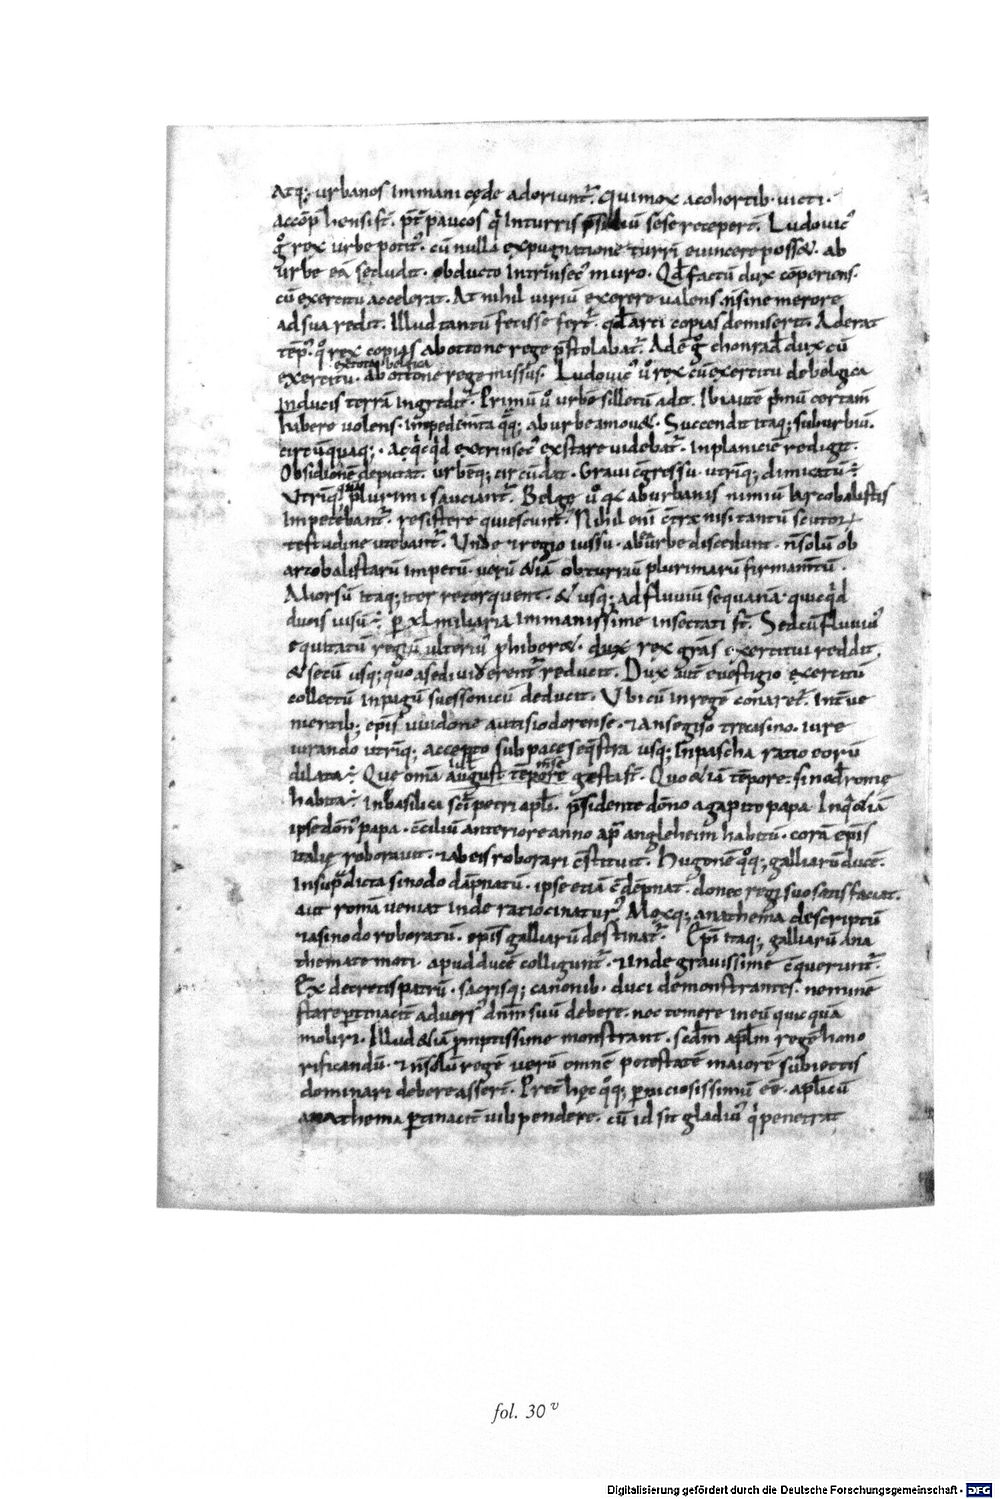 Atq; urbanos immani cęde adoriunt̄. Qui mox a cohortib· victi·
accōp̄hensi st̄. p̄t̄ paucos q̄ in turris p̄sidiū sese recepert̄. Ludovic᾽
g̊ rex urbe potit᾽. cū nulla expugnatione turrī evincere poss&. ab
urbe eā secludit. obducto intrinsec᾽ muro. Qd̄ factū dux cōperiens.
cū exercitu accelerat. At nihil viriū exerere valens. n̄ sine merore
ad sua redit. Illud tantū fecisse fert̄. qd̄ arci copias demiserit. Aderat
tēp᾽. q̊ rex copias ab ottone rege p̄stolabat̄. Adē g̊ chonrad᾽ dux cū
ex tota belgica
exercitu. ab ottone rege missus. Ludovic᾽ ů rex cū exercitu de belgica
in ducis terrā ingredit̄. Primū ů urbē silletū adit. Ibi autē p̄mū certam̄
habere volens. impedim̄ta q̄q; ab urbe amov&. Succendit itaq; suburbiū.
circūquaq;. ac qicqd̄ extrinsec᾽ exstare videbat̄. in planiciē redigit.
Obsidionē deputat. urbēq; circūdat. Gravi c̄gressu utriq; dimicatū ÷
Utriq; quā plurimi sauciant̄. Belgę ů q̄a ab urbanis nimiū arcobalistis
impetebant̄. resistere quiescunt̄. Nihil eni c̄tra nisi tantū scutor̄
testudine utebant̄. Unde & regio iussu. ab urbe discedunt. n̄ solū ob
arcobalistarū impetū. verū &iā ob turriū plurimarū firmam̄tū.
Aliorsū itaq; iter retorquent. & usq; ad fluviū sequanā quicqd̄
ducis visū ÷. p̄ xl miliaria immanissime insectati st̄. Sed cū fluvius
equitatū regiū ulteri᾽ phiber&. dux rex grās exercitui reddit.
& secū usq; quo a se dividerent̄ reducit. Dux aut̄ e vestigio exercitū
collectū in pagū suessonicū deducit. Ubi cū in regē conaret̄. int̄ve
nientib; ep̄is widone autisiodorense. & ansegiso trecasino. iure
iurando utriq; accepto sub pace seq̄stra usq; in pascha ratio eorū
dilata ÷. Quę omīa iul᾽ august tēpore mse gesta st̄. Quo &iā tēpore. sinod᾽ romę
habita ÷. in basilica sc̄i petri apl̄i. p̄sidente dōno agapito papa. In q̄ &iā
ipse dōn᾽ papa. c̄ciliū anteriore anno ap̄ angleheim habitū. corā ep̄is
italię roboravit. & ab eis roborari c̄stituit. Hugonē q̊q; galliarū ducē.
in sup̄dicta sinodo dāpnatū. ipse etiā c̄dēpnat. donec regi suo satisfaciat.
aut romā veniat inde ratiocinatur᾽. Moxq; anathema descriptū
& a sinodo roboratū. ep̄is galliarū destinat̄. Ep̄i itaq; galliarū ana
themate moti. apud ducē colligunt̄. & inde gravissime c̄querunt̄.
Ex decretis patrū. sacrisq; canonib. duci demonstrantes. nemine
stare p̄tinacit̄ advers᾽ dn̄m suū debere. nec temere in eū quicquā
moliri. Illud &iā p̄mptissime monstrant. scd̄m apl̄m regē hono
rificandū. & n̄ solū regē verū omnē potestatē maiorē subiectis
dominari debere assert̄. Pret̄ hęc q̊q; p̄niciosissimū ēē. apl̄icū
anathema p̄tinacit̄ vilipendere. cū id sit gladi᾽ q̄ penetrat
fol. 30 v
Digitalisierung gefördert durch die Deutsche Forschungsgemeinschaft - DFG